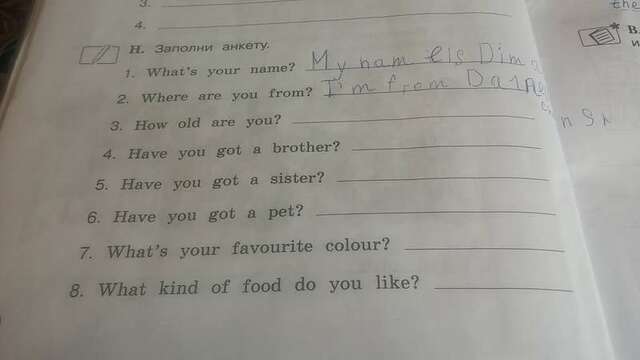 3.
4.
the
B.
и
H. Заполни анкету.
1. What's your name? My nam e is Dima
2. Where are you from? I'm from
3. How old are you?
4. Have you got a brother?
5. Have you got a sister?
6. Have you got a pet?
7. What's your favourite colour?
8. What kind of food do you like?